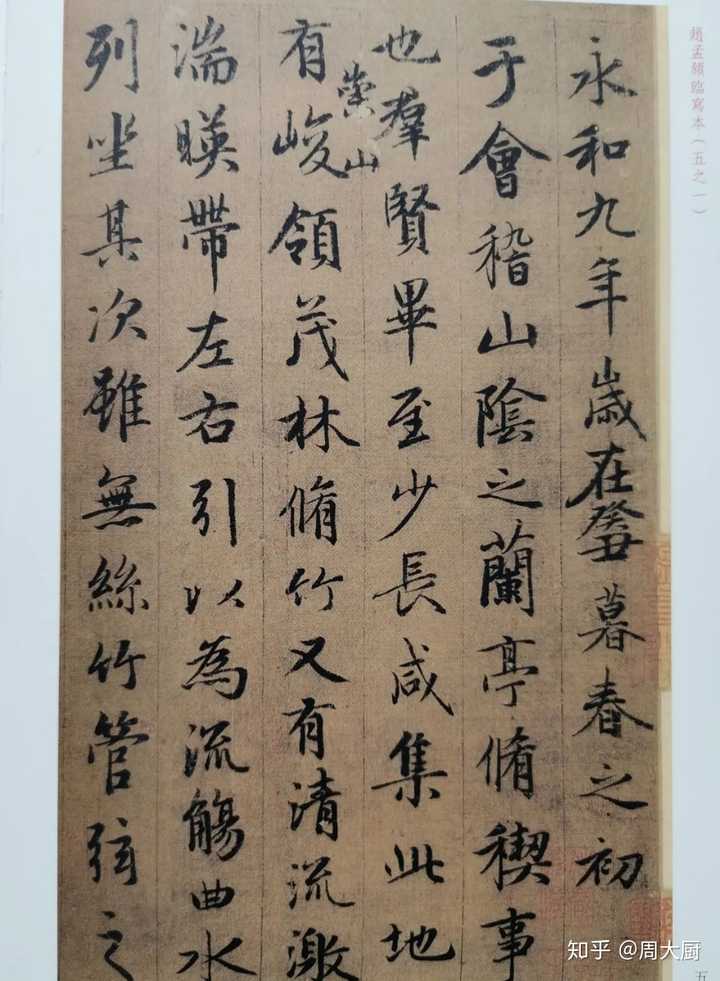 趙孟頫臨寫本(五之一)
永和九年歲在癸丑暮春之初
于會稽山陰之蘭亭脩稧事
也羣賢畢至少長咸集此地
有崇山峻領茂林脩竹又有清流激
湍暎帶左右引以為流觴曲水
列坐其次雖無絲竹管弦之
五
知乎 @周大厨